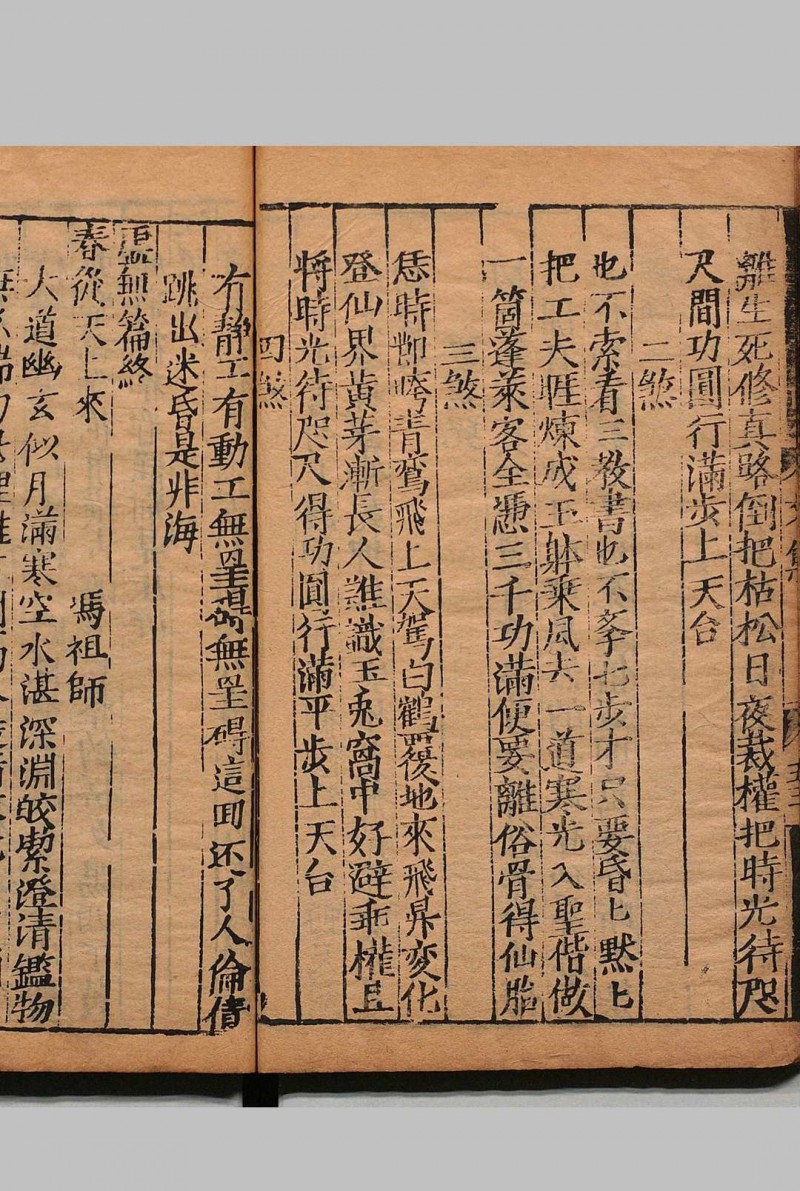 離生死修真路倒把枯松日夜栽權把時光待咫
尺間功圓行滿步上天台
二煞
也不索看三教書也不李七步才只要昏匕默匕
把工夫旺煉成玉躰乘風去一道寒光入聖偕做
一箇蓬萊客全憑三千功滿便要離俗骨得仙胎
三煞
恁時鸞飛上天駕白鶴覆地來飛昇变化
登仙界黃芽漸長人誰識玉兎窩中好避乖權且
將時光待咫尺得功圓行滿平步上天台
四煞
有靜工有動工無罣碍無罣碍這囬还了人倫債
跳出迷昏是非海
虛無篇終
春從天上來 馮祖師
大道幽玄似月滿寒空水湛深淵皎潔澄清鑑物